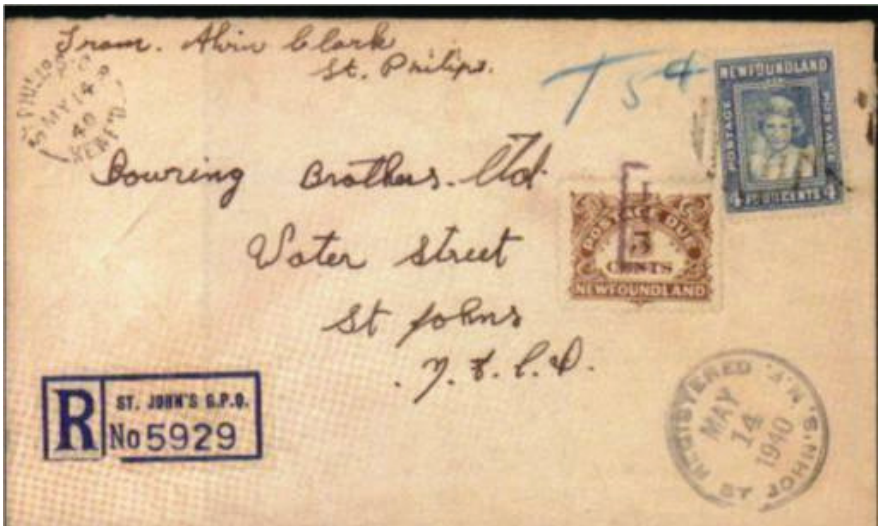 From. Alvin Clark
St. Philips.
MY 14
40
NEWF'D
T 5¢
NEWFOUNDLAND
POSTAGE
POSTAGE
4 FOUR CENTS 4
Bowring Brothers. Ltd
Water Street
St Johns
N. F. L. D.
POSTAGE DUE
5
CENTS
NEWFOUNDLAND
R
ST. JOHN'S G.P.O.
No 5929
REGISTERED "A"
MAY
14
1940
ST JOHN'S. N.